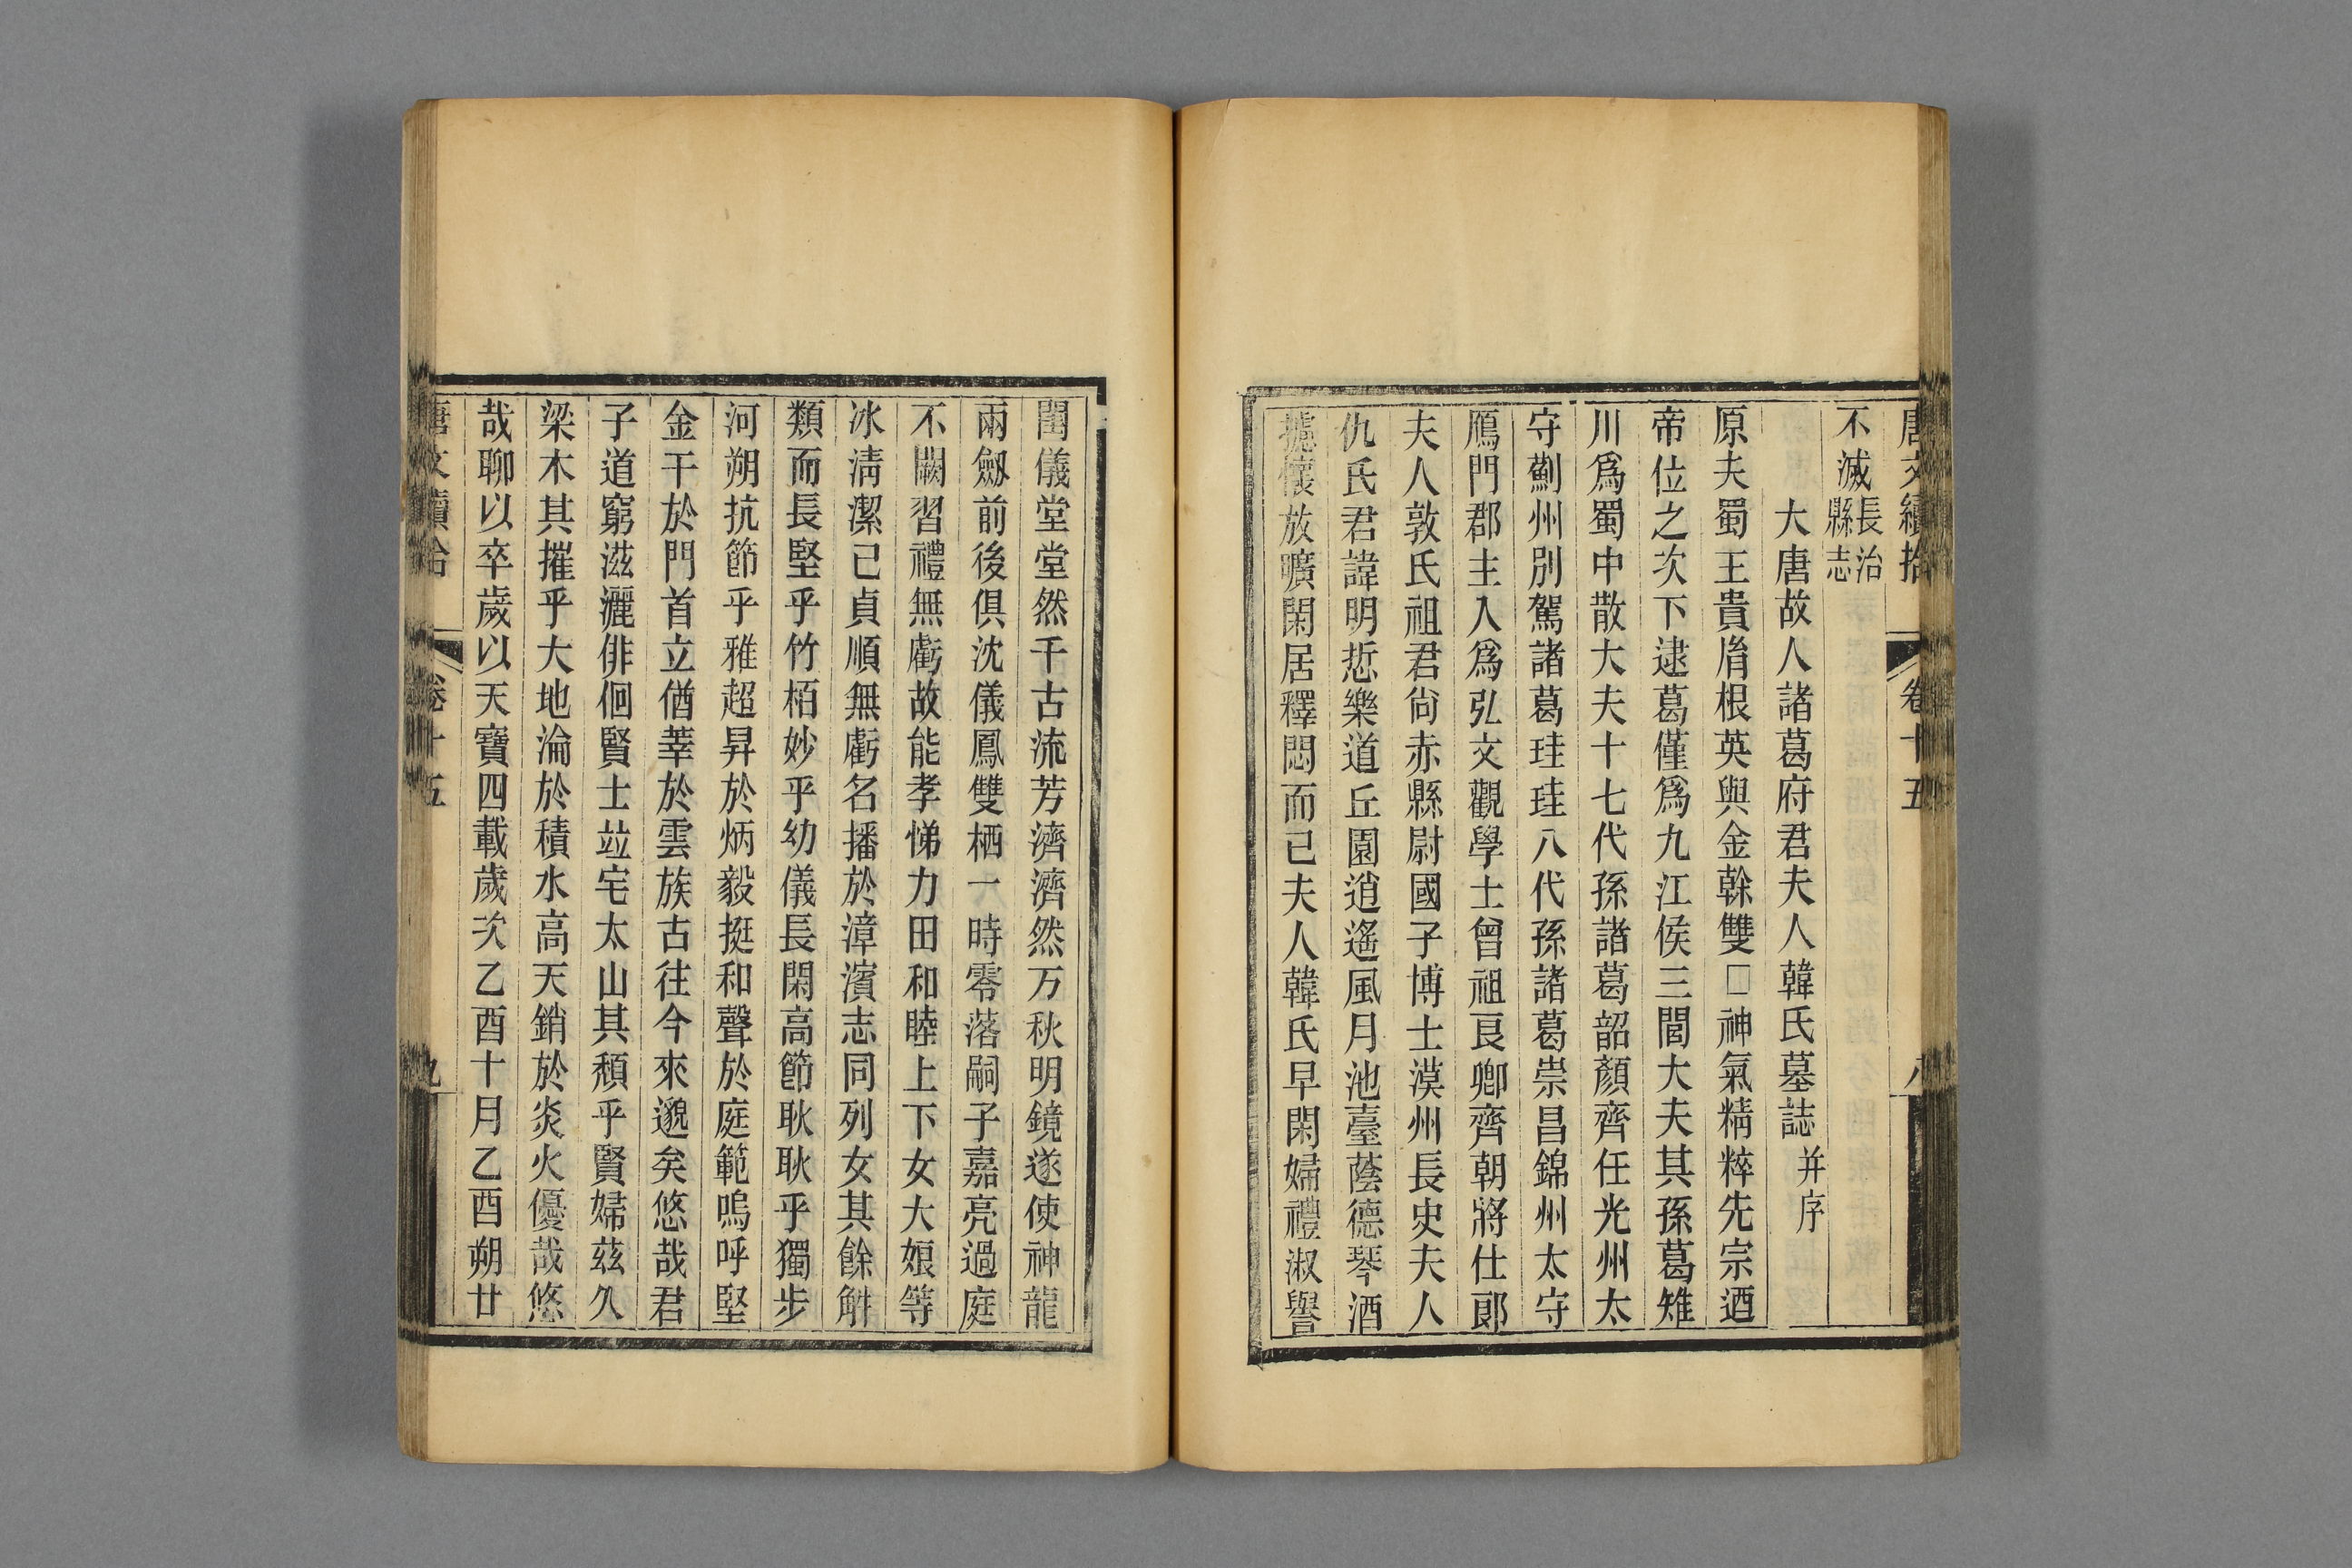 唐文續拾 卷十五 八
不滅長治縣志
大唐故人諸葛府君夫人韓氏墓誌并序
原夫蜀王貴胤根英與金榦雙□神氣精粹先宗迺
帝位之次下逮葛僅爲九江侯三閭大夫其孫葛雉
川爲蜀中散大夫十七代孫諸葛韶顏齊任光州太
守薊州別駕諸葛珪珪八代孫諸葛崇昌錦州太守
鴈門郡主入爲弘文觀學士曾祖良卿齊朝將仕郎
夫人敦氏祖君尙赤縣尉國子博士漠州長史夫人
仇氏君諱明悊樂道丘園逍遙風月池臺蔭德琴酒
攄懷放曠閑居釋悶而已夫人韓氏早閑婦禮淑譽
閨儀堂堂然千古流芳濟濟然万秋明鏡遂使神龍
兩劒前後俱沈儀鳳雙栖一時零落嗣子嘉亮過庭
不闕習禮無虧故能孝悌力田和睦上下女大娘等
冰淸潔己貞順無虧名播於漳濱志同列女其餘斛
類而長堅乎竹栢妙乎幼儀長閑高節耿耿乎獨步
河朔抗節乎雅超昇於炳毅挺和聲於庭範嗚呼堅
金干於門首立偤莘於雲族古往今來邈矣悠哉君
子道窮滋灑俳佪賢士竝宅太山其頹乎賢婦茲久
梁木其摧乎大地淪於積水高天銷於炎火優哉悠
哉聊以卒歲以天寶四載歲次乙酉十月乙酉朔廿
唐文續拾 卷十五 九